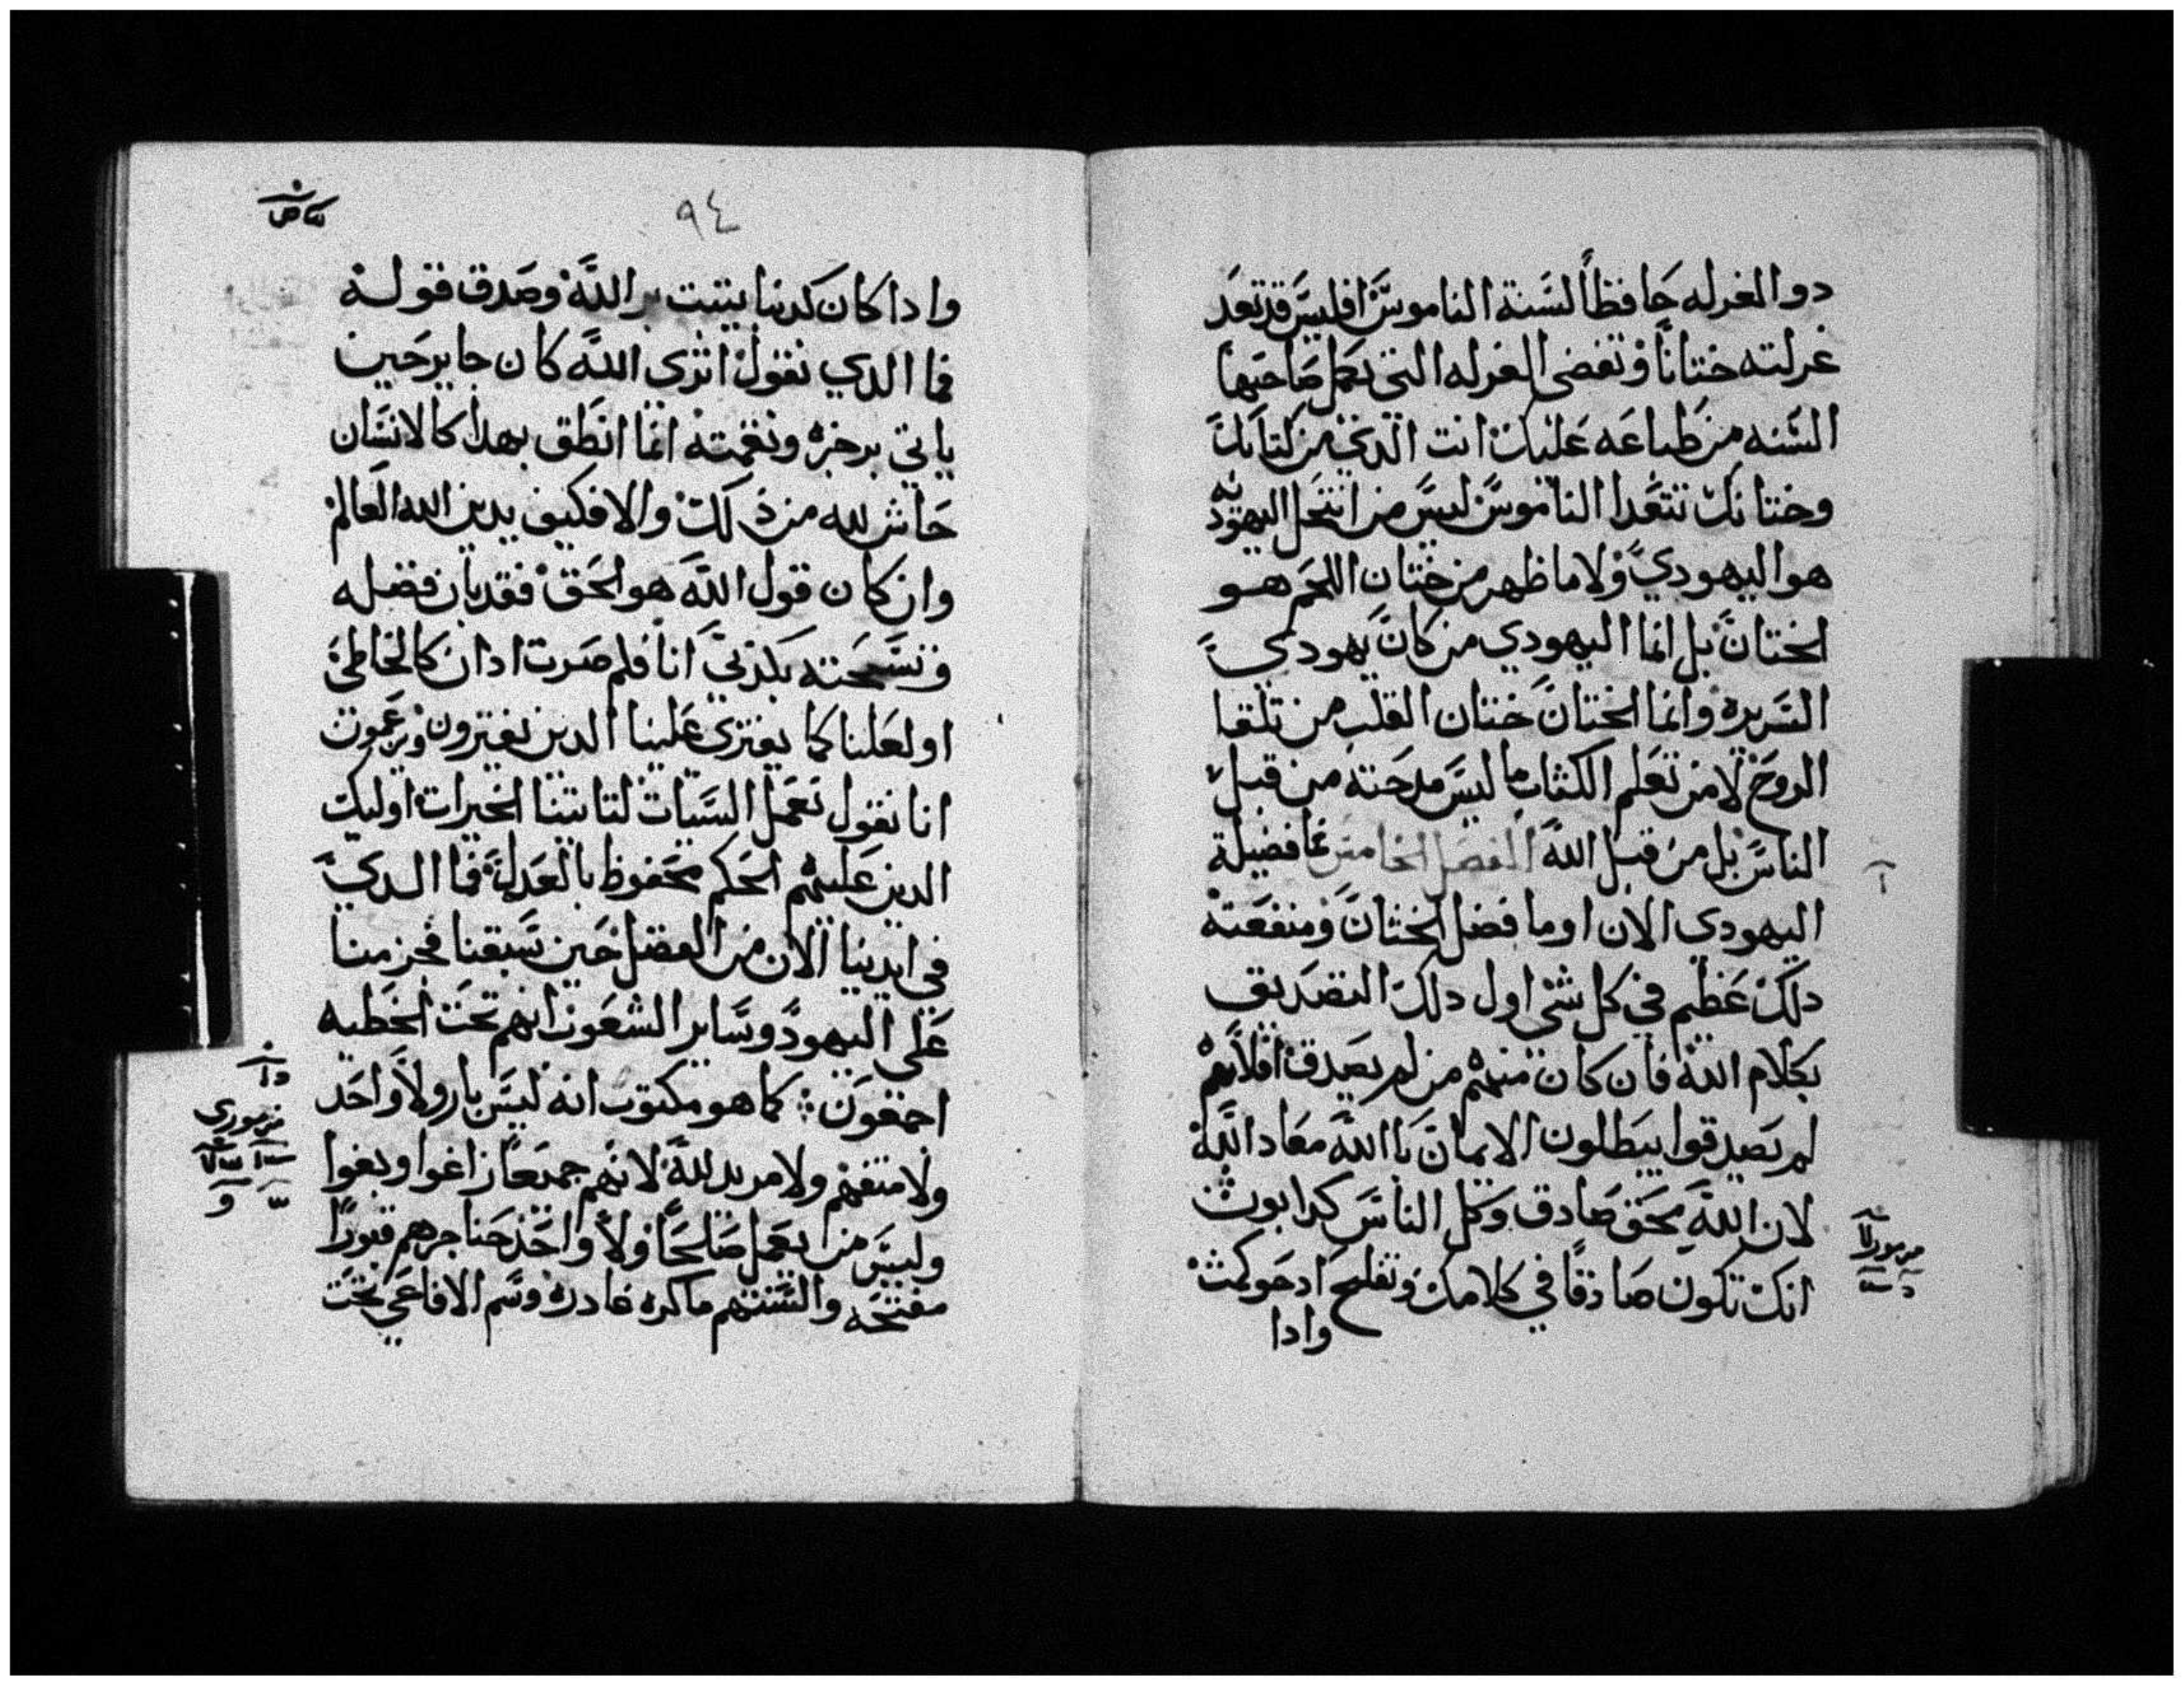 دوا الغرله حافظاً لسنة الناموس افليس قد تعد
غرلته ختاناً وتقضى الغرله التى تكمل صاحبها
السنه من طباعه عليك انت الذي من كتابك
وختانك تتعدا الناموس ليس من انتحل اليهوديه
هو اليهودي ولا ما ظهر من ختان اللحم هو
الختان بل انما اليهودي من كان يهودي
السريره وانما الختان ختان القلب من تلقا
الروح لا من تعلم الكتاب ما ليس مدحته من قبل
الناس بل من قبل الله الفصل الخامس فما فضيلة
اليهودي الان او ما فضل الختان ومنفعته
دلك عظيم في كل شى اول دلك التصديق
بكلام الله فان كان منهم من لم يصدق افلانهم
لم يصدقوا يبطلون الايمان باالله معاد الله
لان الله محق صادق وكل الناس كدابون
انك تكون صادقاً في كلامك وتفلح ادحوكمت
وادا
مزمور
٩٤
وادا كان كدبنا يثبت بر الله وصدق قوله
فما الدي نقول اترى الله كان جاير حين
ياتي برجزه ونقمته انما انطق بهدا كالانسان
حاش لله من ذلك والا فكيف يدين الله العالم
وان كان قول الله هو الحق فقد بان فضله
وتسبحته بكذبى انا فلم صرت ادان كالخاطئ
او لعلنا كما يفترى علينا الدين يفترون ويزعمون
انا نقول نعمل السيات لتاتينا الخيرات اوليك
الدين عليهم الحكم محفوظ بالعدل فما الدي
في ايدينا الان من الفضل حين سبقنا فجزمنا
على اليهود وساير الشعون انهم تحت الخطيه
اجمعون كما هو مكتوب انه ليس بار ولا واحد
ولا متفهم ولا مريد لله لانهم جميعاً زاغوا وبغوا
وليس من يعمل صالحاً ولا واحد حناجرهم قبوراً
مفتحه والسنتهم ماكره غادره وسم الافاعي تحت
مزموري